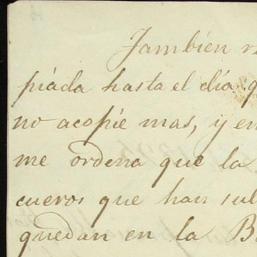 Tambien r
piada hasta el dia q
no acopie mas, y en
me ordena que la
cueros que han sul
quedan en la B